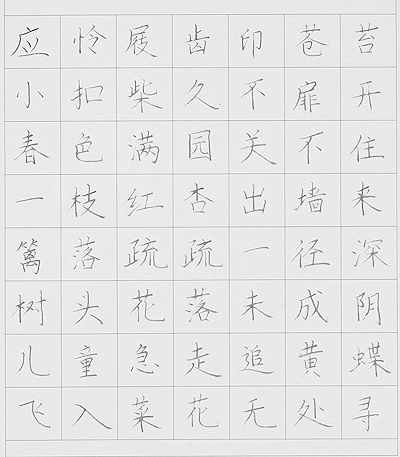 应怜屐齿印苍苔
小扣柴久不扉开
春色满园关不住
一枝红杏出墙来
篱落疏疏一径深
树头花落未成阴
儿童急走追黄蝶
飞入菜花无处寻